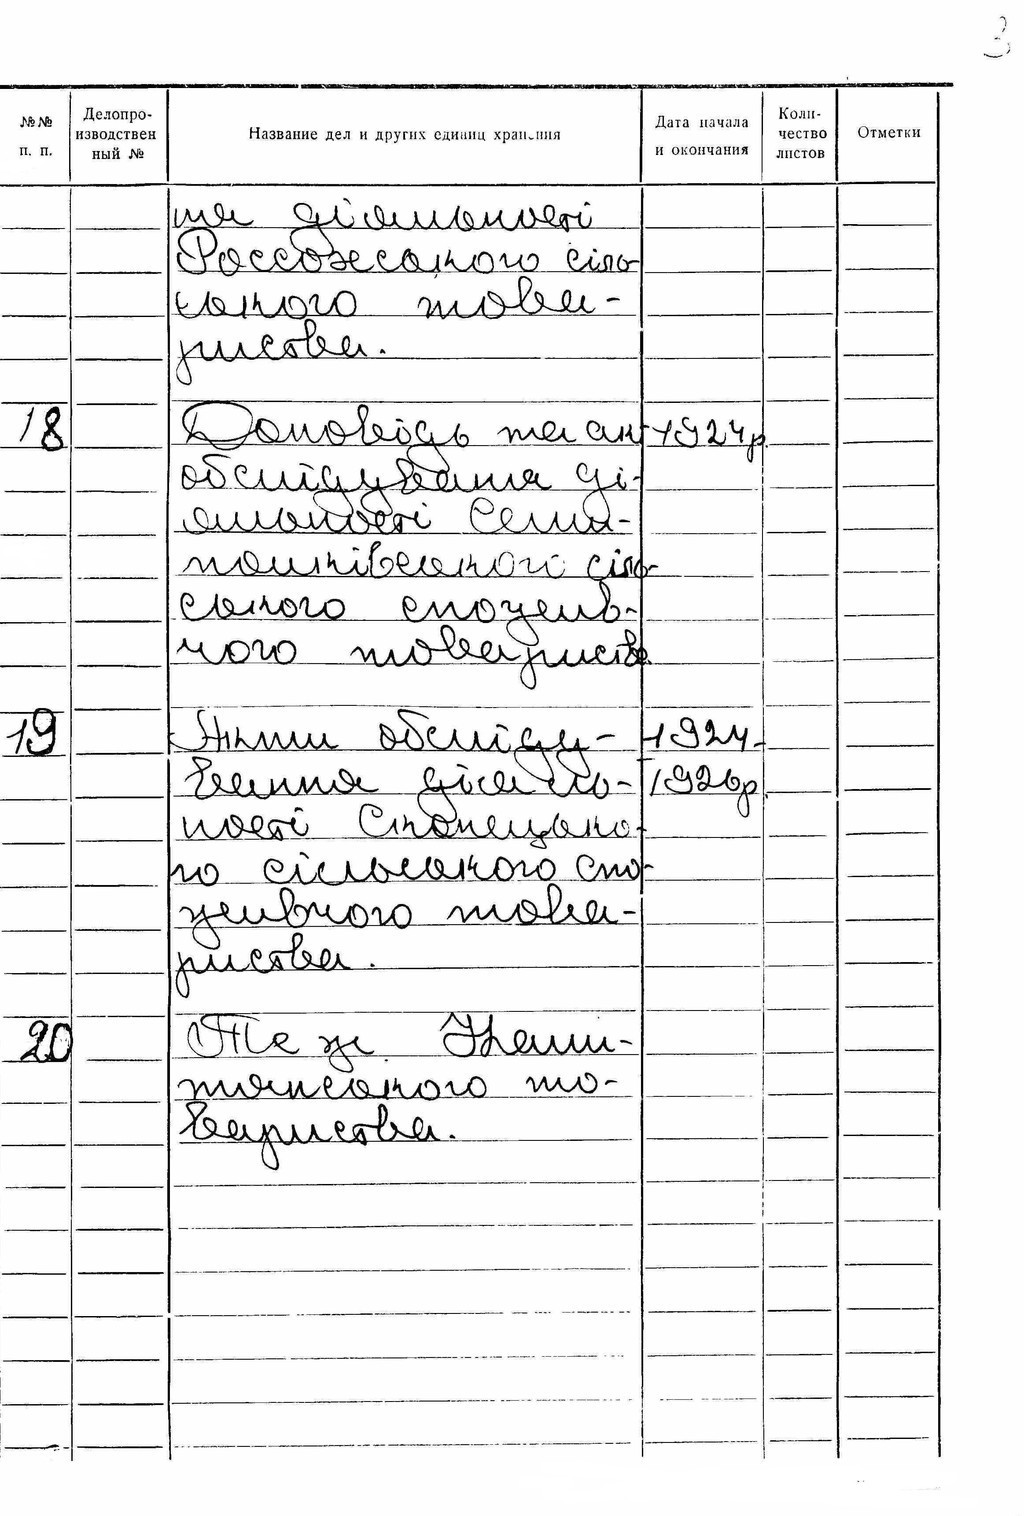 3
№№ п. п.
Делопро-
изводствен
ный №
Название дел и других единиц хранения
Дата начала
и окончания
Коли-
чество
листов
Отметки
та діяльності
Россожеського сіль
ського това-
риства.
18 Доповідь та ак 1924р.
обслідування ді-
яльності
сіль-
ського спожив-
чого товариства.
19 Акти обсліду- 1924-
вання діяль- 1926р.
ності Стопецько-
го сільського спо-
живчого това-
риства.
20 Те ж
то-
вариства.